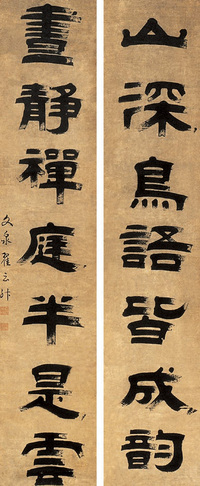 山深鳥語皆成韵
晝靜禪庭半是雲
文泉翟云升